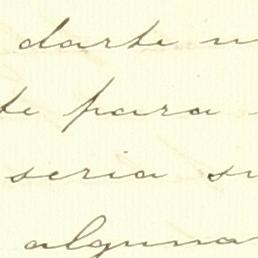 darte
te para
seria
alguna